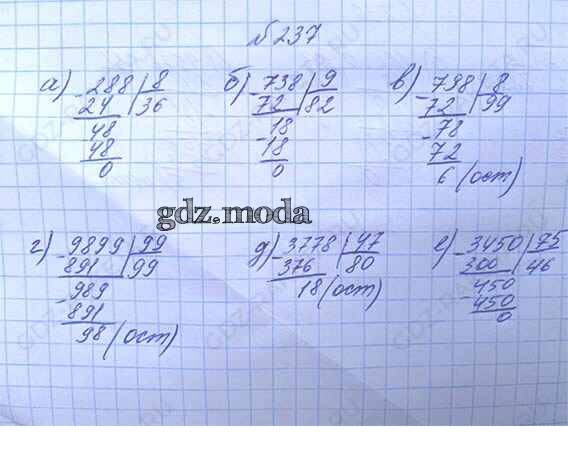 № 237
а) 288 | 8
24 | 36
48
48
0
б) 738 | 9
72 | 82
18
18
0
в) 798 | 8
72 | 99
78
72
6 (ост)
gdz.moda
г) 9899 | 99
891 | 99
989
891
98 (ост)
д) 3778 | 47
376 | 80
18 (ост)
е) 3450 | 75
300 | 46
450
450
0